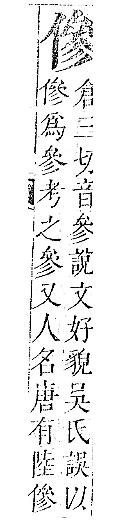 傪
倉三切音參說文好貌吳氏誤以
傪為參考之參又人名唐有陸傪